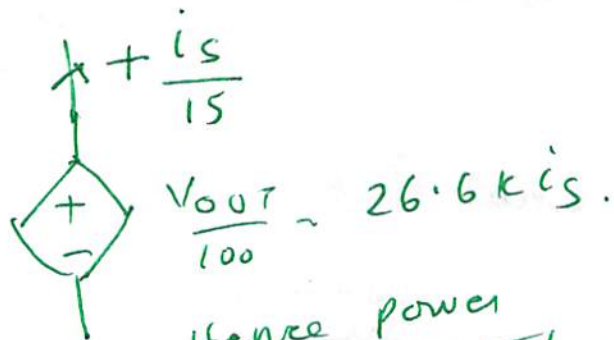 + is/15
+
-
VOUT/100 ~ 26.6 k is.
Hence power